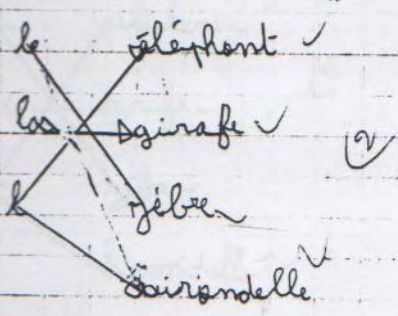 le éléphant ✓
la girafe ✓
l zèbre
hirondelle ✓